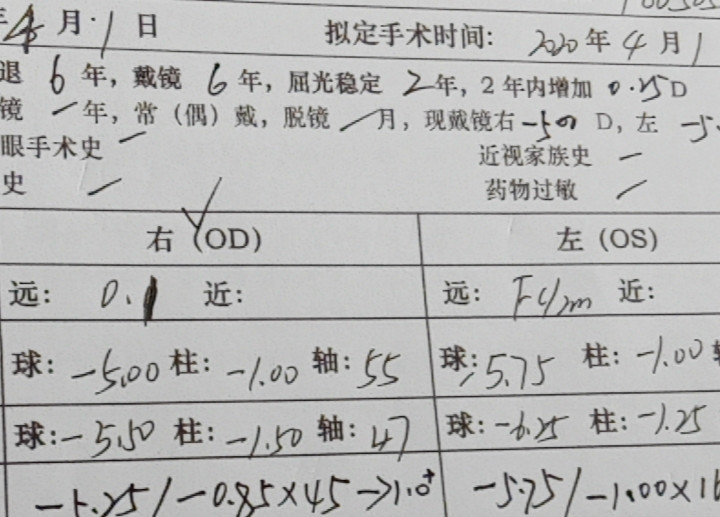 年4月·1日 拟定手术时间: 2020年4月1
退6年，戴镜6年，屈光稳定2年，2年内增加0.25D
镜一年，常（偶）戴，脱镜 / 月，现戴镜右-5.00 D，左 -5.
眼手术史 一 近视家族史 一
史 / 药物过敏 /
右 (OD) 左 (OS)
远: 0.1 近: 远: Fc/m 近:
球: -5.00 柱: -1.00 轴: 55 球: 5.75 柱: -1.00
球: -5.50 柱: -1.50 轴: 47 球: -6.25 柱: -1.25
-5.25/-0.85×45→1.0⁺ -5.75/-1.00×1